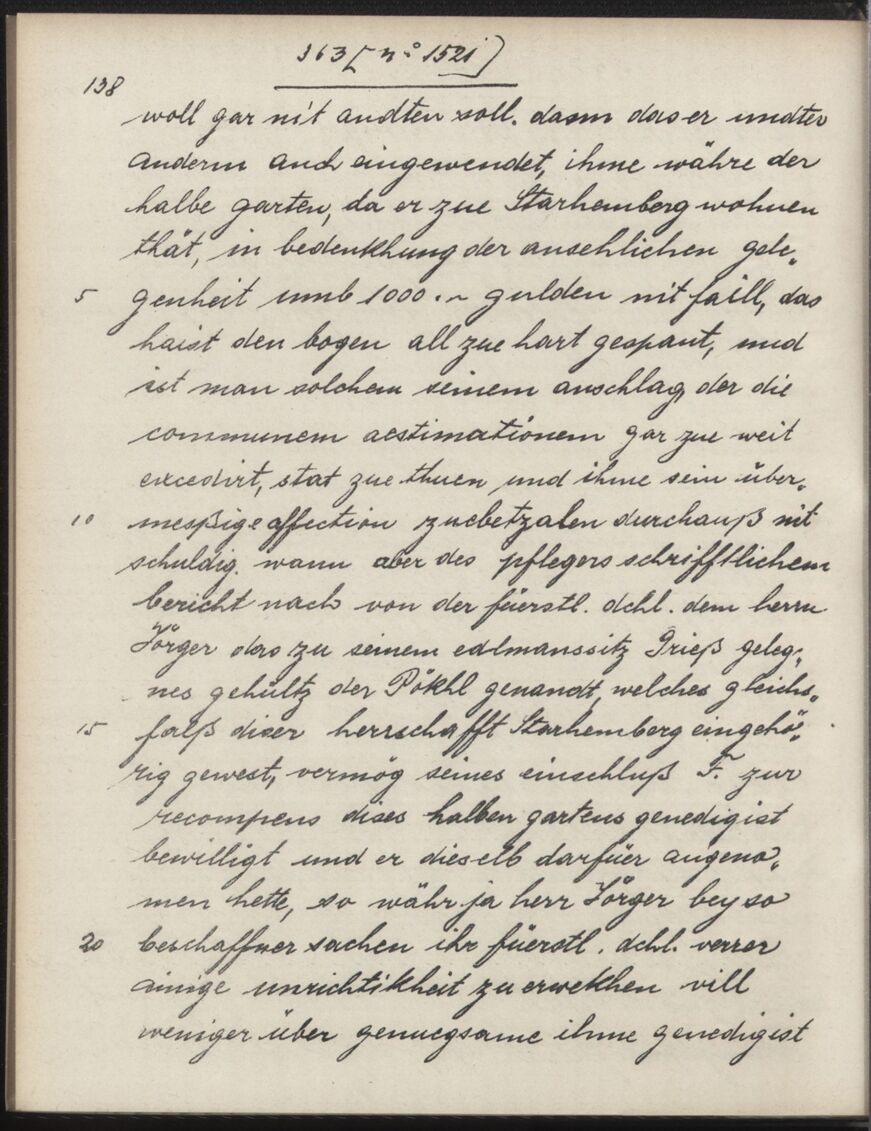 363 [nº 1521]
138
woll gar nit andten soll. dann das er undter
anderm auch eingewendet, ihme währe der
halbe garten, da er zue Starhemberg wohnen
thät, in bedenkhung der ansehlichen gele„
5 genheit umb 1000.~ gulden nit faill, das
haist den bogen all zue hart gespant, und
ist man solchem seinem anschlag, der die
communem aestimationem gar zue weit
excedirt, stat zue thuen und ihme sein über„
10 meßige affection zuebetzalen durchauß nit
schuldig. wann aber des pflegers schrifftlichem
bericht nach von der füerstl. dchl. dem herrn
Jörger das zu seinem edlmanssitz Grieß geleg„
nes gehültz der Pökhl genandt, welches gleichs„
15 falß diser herrschafft Starhemberg eingehö„
rig gewest, vermög seines einschluß F. zur
recompens dises halben gartens genedigist
bewilligt und er dieselb darfüer angeno„
men hette, so währ ja herr Jörger bey so
20 beschaffner sachen ihr füerstl. dchl. verrer
einige unrichtikheit zu erwekhen vill
weniger über genuegsame ihme genedigist